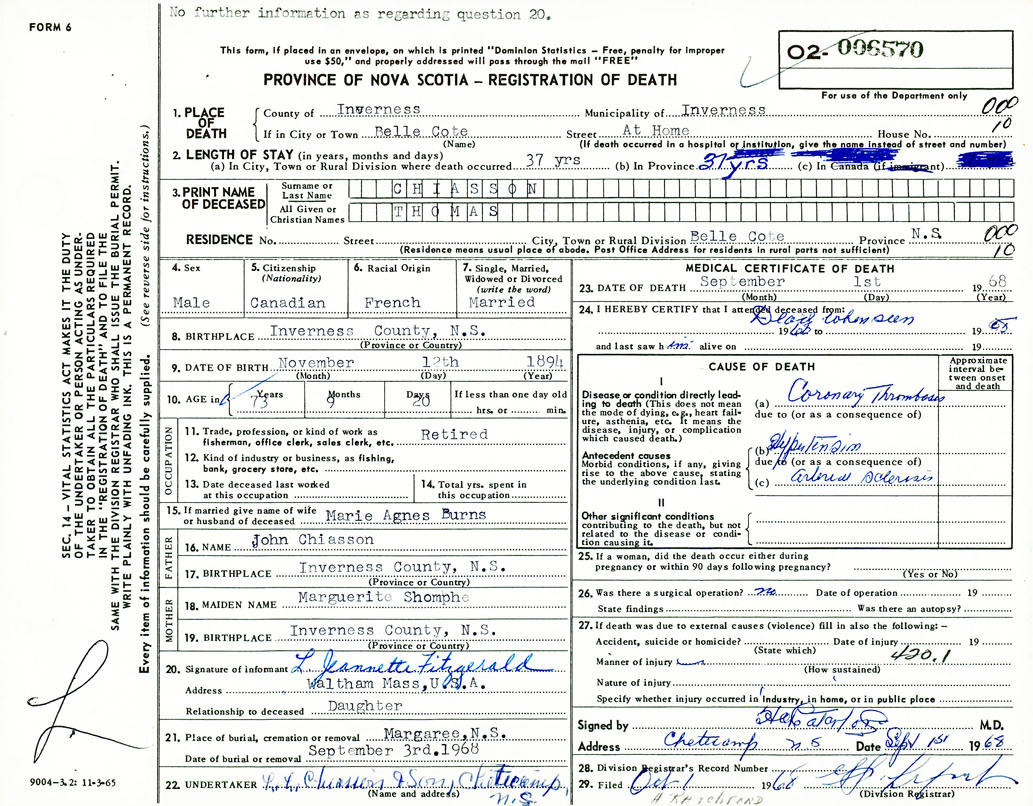 No further information as regarding question 20.
FORM 6
This form, if placed in an envelope, on which is printed "Dominion Statistics – Free, penalty for improper
use $50," and properly addressed will pass through the mail "FREE"
O2- 006570
PROVINCE OF NOVA SCOTIA – REGISTRATION OF DEATH
For use of the Department only
1. PLACE OF DEATH
County of Inverness Municipality of Inverness 000
If in City or Town Belle Cote Street At Home House No. 10
(Name) (If death occurred in a hospital or institution, give the name instead of street and number)
2. LENGTH OF STAY (in years, months and days)
(a) In City, Town or Rural Division where death occurred 37 yrs (b) In Province 37 yrs (c) In Canada (if immigrant)
3. PRINT NAME OF DECEASED
Surname or Last Name CHIASSON
All Given or Christian Names THOMAS
RESIDENCE No. Street City, Town or Rural Division Belle Cote Province N.S. 000
(Residence means usual place of abode. Post Office Address for residents in rural parts not sufficient) 10
4. Sex
Male
5. Citizenship
(Nationality)
Canadian
6. Racial Origin
French
7. Single, Married,
Widowed or Divorced
(write the word)
Married
8. BIRTHPLACE Inverness County, N.S.
(Province or Country)
9. DATE OF BIRTH November 12th 1894
(Month) (Day) (Year)
10. AGE in Years Months Days If less than one day old
73 9 20 hrs. or min.
OCCUPATION
11. Trade, profession, or kind of work as
fisherman, office clerk, sales clerk, etc. Retired
12. Kind of industry or business, as fishing,
bank, grocery store, etc.
13. Date deceased last worked
at this occupation
14. Total yrs. spent in
this occupation
15. If married give name of wife
or husband of deceased Marie Agnes Burns
FATHER
16. NAME John Chiasson
17. BIRTHPLACE Inverness County, N.S.
(Province or Country)
MOTHER
18. MAIDEN NAME Marguerite Shomphe
19. BIRTHPLACE Inverness County, N.S.
(Province or Country)
20. Signature of informant L. Jeannette Fitzgerald
Address Waltham Mass, U.S.A.
Relationship to deceased Daughter
21. Place of burial, cremation or removal Margaree, N.S.
Date of burial or removal September 3rd. 1968
22. UNDERTAKER Chiasson & Son, Cheticamp,
(Name and address) N.S.
MEDICAL CERTIFICATE OF DEATH
23. DATE OF DEATH September 1st 1968
(Month) (Day) (Year)
24. I HEREBY CERTIFY that I attended deceased from:
Dead when seen
19 68 to 19 68
and last saw him alive on 19
CAUSE OF DEATH
Approximate
interval be-
tween onset
and death
I
Disease or condition directly lead-
ing to death (This does not mean
the mode of dying, e.g., heart fail-
ure, asthenia, etc. It means the
disease, injury, or complication
which caused death.)
(a) Coronary Thrombosis
due to (or as a consequence of)
Antecedent causes
Morbid conditions, if any, giving
rise to the above cause, stating
the underlying condition last.
(b) Hypertension
due to (or as a consequence of)
(c) Arterial Sclerosis
II
Other significant conditions
contributing to the death, but not
related to the disease or condi-
tion causing it.
25. If a woman, did the death occur either during
pregnancy or within 90 days following pregnancy?
(Yes or No)
26. Was there a surgical operation? no Date of operation 19
State findings Was there an autopsy?
27. If death was due to external causes (violence) fill in also the following: –
Accident, suicide or homicide? Date of injury 19
(State which) 420.1
Manner of injury
(How sustained)
Nature of injury
Specify whether injury occurred in industry, in home, or in public place
Signed by M.D.
Address Cheticamp N S Date Sept 1st 1968
28. Division Registrar's Record Number
29. Filed Oct 1 1968
(Division Registrar)
SEC. 14 – VITAL STATISTICS ACT MAKES IT THE DUTY
OF THE UNDERTAKER OR PERSON ACTING AS UNDER-
TAKER TO OBTAIN ALL THE PARTICULARS REQUIRED
IN THE "REGISTRATION OF DEATH" AND TO FILE THE
SAME WITH THE DIVISION REGISTRAR WHO SHALL ISSUE THE BURIAL PERMIT.
WRITE PLAINLY WITH UNFADING INK. THIS IS A PERMANENT RECORD.
Every item of information should be carefully supplied. (See reverse side for instructions.)
9004-3.2: 11-3-65